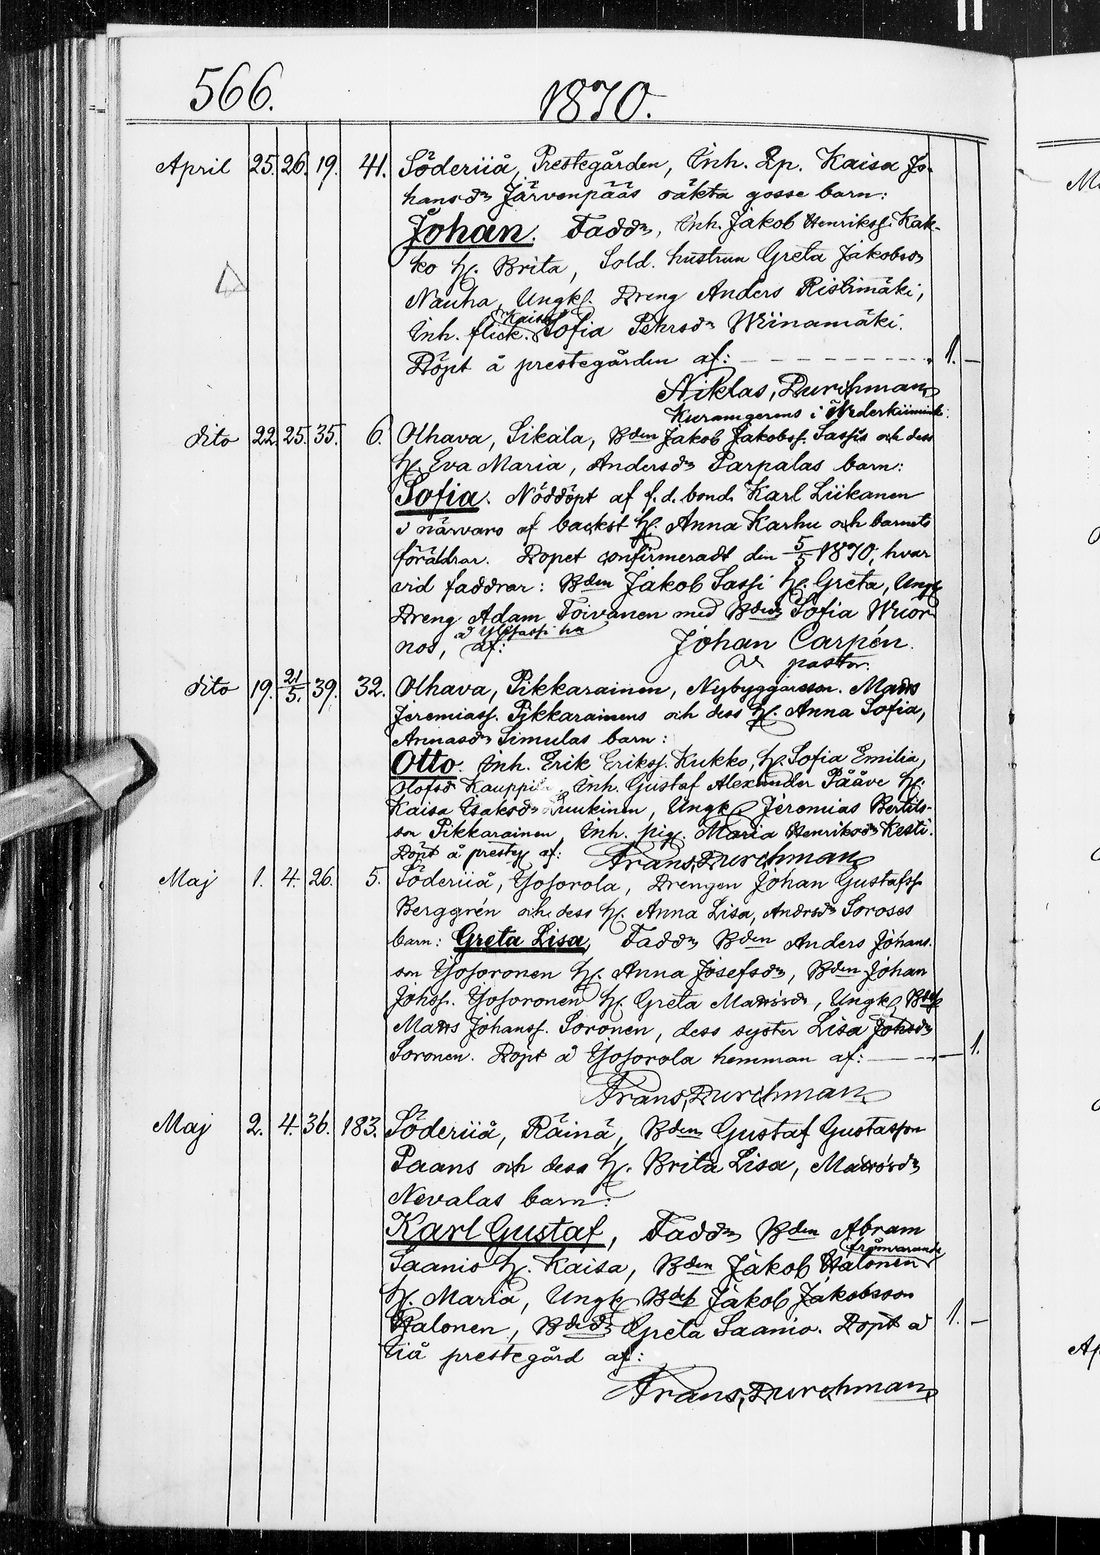 566. 1870.
April 25. 26. 19. 41. Söderiiå, Prestegården, Inh. Ep. Kaisa Jo-
hansdr Järvenpääs oäkta gosse barn:
Johan. Faddr, Inh. Jakob Henrikss. Kak-
ko H. Brita, Sold. hustrun Greta Jakobsdr
Nauha, Ungk. Dreng Anders Ristimäki,
Kaisa
Inh. flick. Sofia Pehrsdr Wiinamäki.
Döpt å prestegården af: 1. –
Niklas, Durchman
i Nederkiimink.
dito 22. 25. 35. 6. Olhava, Sikala, Bden Jakob Jakobss. Sassis och dess
H. Eva Maria, Andersdr Parpalas barn:
Sofia. Nöddöpt af f.d. bond. Karl Liikanen
i närvaro af backst H. Anna Karhu och barnets
föräldrar. Dopet confirmeradt den 5/5 1870, hvar
vid faddrar: Bden Jakob Sassi H. Greta, Ungk
Dreng Adam Toivanen med Sofia Wuor
nos, af: Johan Carpén.
v pastor.
dito 19. 21/5. 39. 32. Olhava, Pikkarainen, Nybyggaresson. Matts
Jeremiass. Pikkarainens och dess H. Anna Sofia,
Simulas barn:
Otto. Inh. Erik Erikss. Kukko, H. Sofia Emilia,
Olofsdr Inh. Gustaf Alexander Pääve H.
Kaisa Isaksdr Ungk Jeremias Bertils-
son Pikkarainen, Inh. pig. Maria Henriksdr Kesti.
Döpt å presteg af: Frans, Durchman
Maj 1. 4. 26. 5. Söderiiå, Yosorola, Drengen Johan Gustafss
Berggrén och dess H. Anna Lisa, Andrsdr Soroses
barn: Greta Lisa, Faddr Bden Anders Johans-
son Yosoronen H. Anna Josefsdr, Bden Johan
Johss. Yosoronen H. Greta Mattsdr, Ungk
Matts Johanss. Soronen, dess syster Lisa Johsdr
Soronen. Döpt å Yosorola hemman af: 1.
Frans, Durchman
Maj 2. 4. 36. 183. Söderiiå, Räinä, Bden Gustaf Gustafsson
Paans och dess H. Brita Lisa, Mattsdr
Nevalas barn:
Karl Gustaf, Faddr Bden Abram
frånvarande
Saanio H. Kaisa, Bden Jakob Halonen
H. Maria, Ungk Jakob Jakobsson
Halonen, Greta Saanio. Döpt å 1. –
Iiå prestegård af:
Frans, Durchman